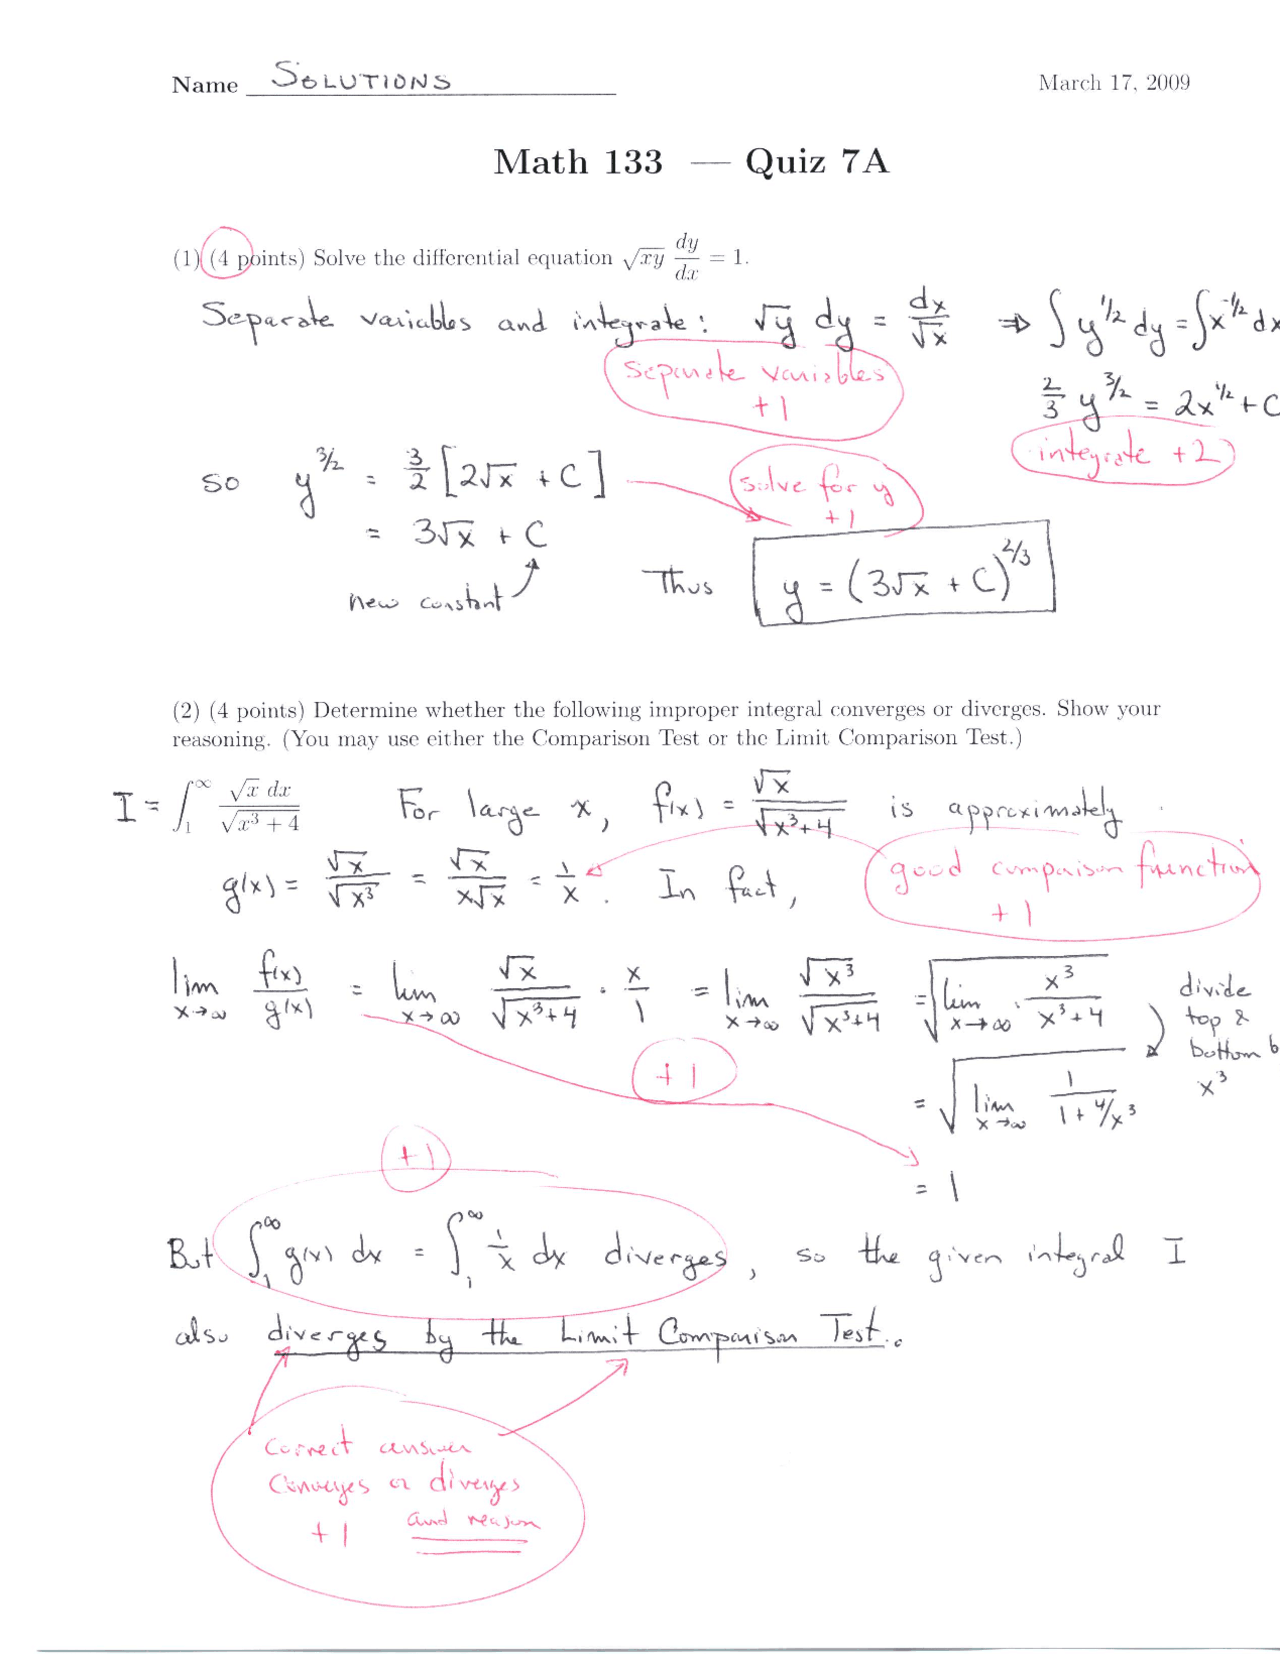 Name SOLUTIONS March 17, 2009
Math 133 — Quiz 7A
(1) (4 points) Solve the differential equation √xy dy/dx = 1.
Separate variables and integrate: √y dy = dx/√x ⇒ ∫ y^1/2 dy = ∫ x^-1/2 dx
separate variables
+1
2/3 y^3/2 = 2x^1/2 + C
integrate +2
so y^3/2 = 3/2 [2√x + C]
solve for y
+1
= 3√x + C
new constant
Thus y = (3√x + C)^2/3
(2) (4 points) Determine whether the following improper integral converges or diverges. Show your
reasoning. (You may use either the Comparison Test or the Limit Comparison Test.)
I = ∫_1^∞ √x dx / √x^3 + 4 For large x, f(x) = √x / √x^3+4 is approximately
g(x) = √x / √x^3 = √x / x√x = 1/x. In fact,
good comparison function
+1
lim x→∞ f(x)/g(x) = lim x→∞ √x / √x^3+4 · x/1 = lim x→∞ √x^3 / √x^3+4 = √lim x→∞ x^3 / x^3+4
divide
top &
bottom b
x^3
+1
= √lim x→∞ 1 / 1 + 4/x^3
= 1
+1
But ∫_1^∞ g(x) dx = ∫_1^∞ 1/x dx diverges, so the given integral I
also diverges by the Limit Comparison Test.
Correct answer
Converges or diverges
+1 and reason